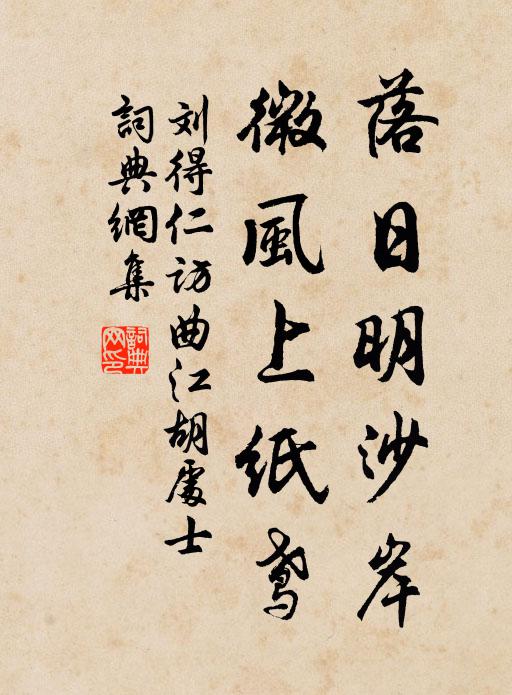 落日明沙岸
微風上紙鳶
刘得仁访曲江胡處士
詞典網集
詞典网印